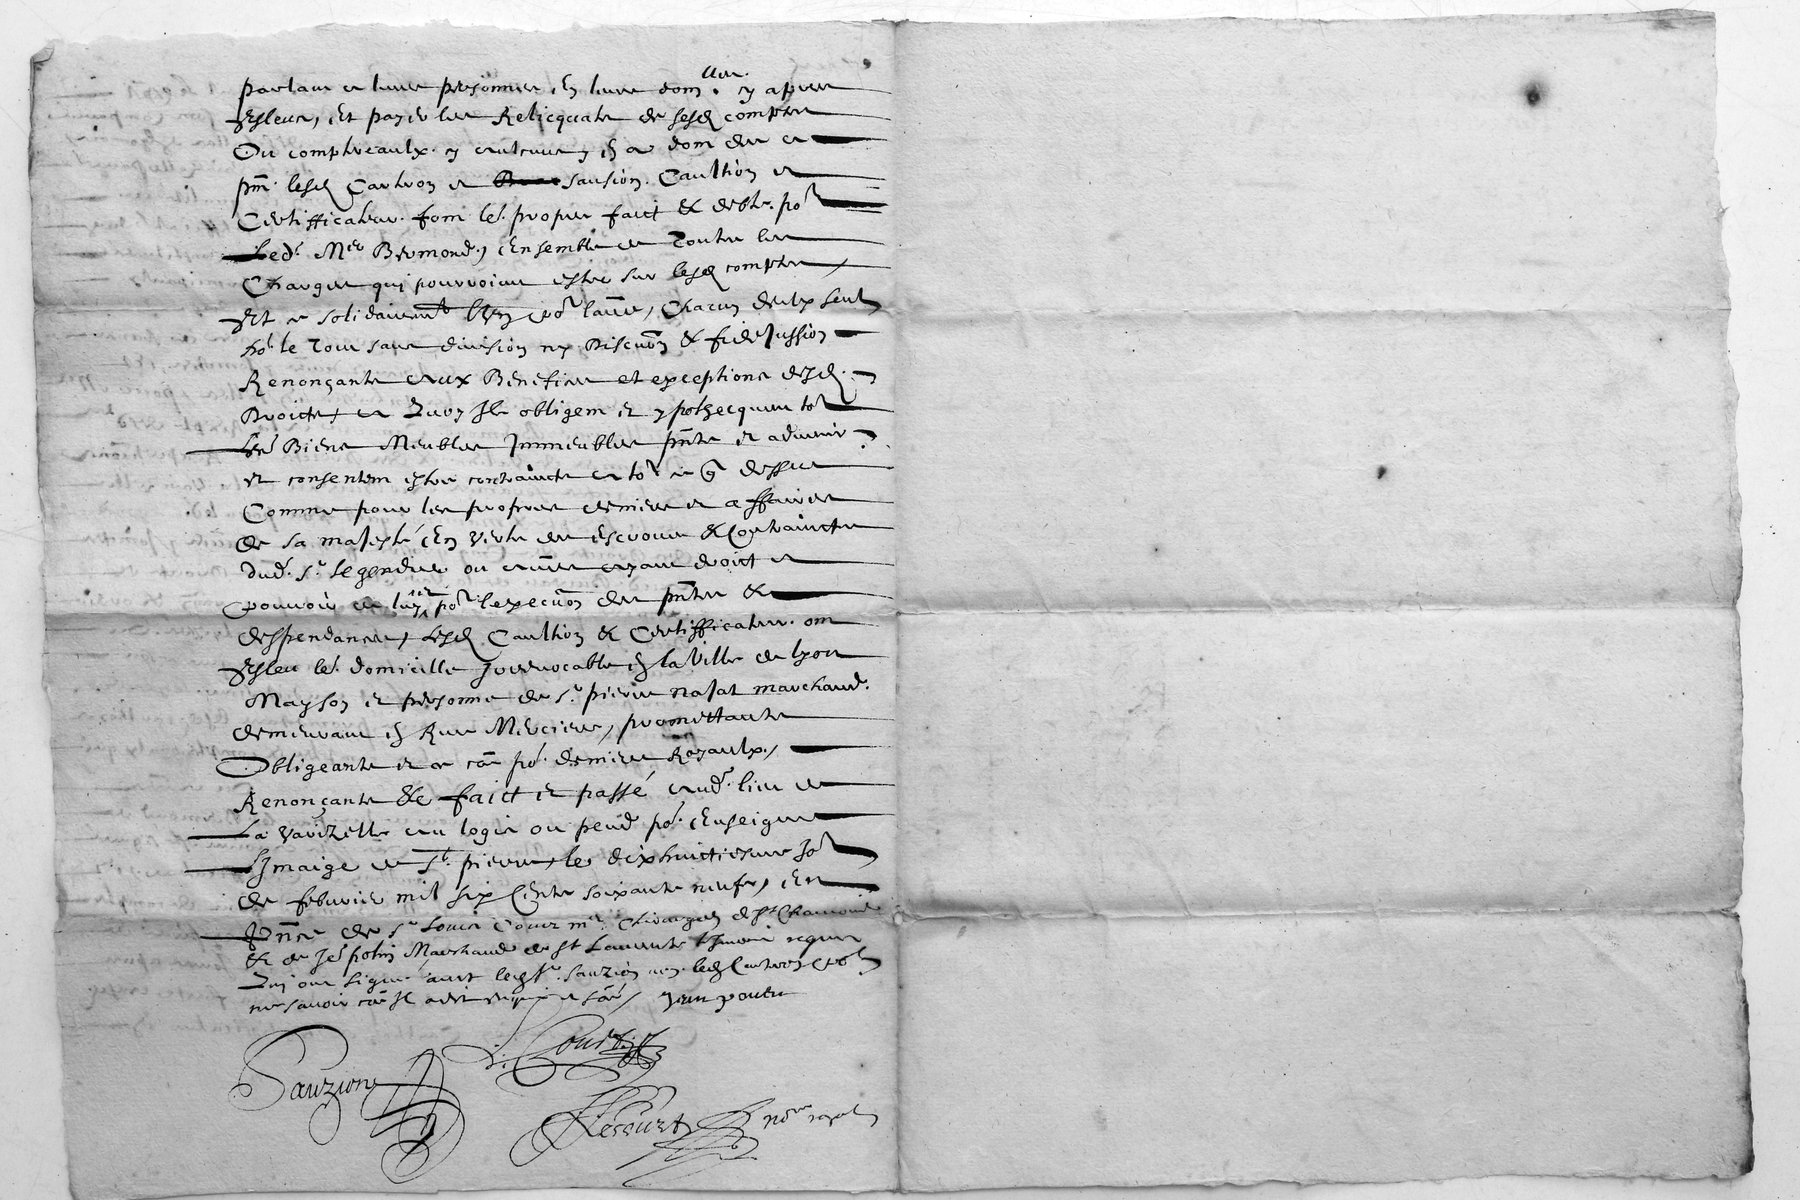 parlant a leurs personnes En leurs dom.^lles cy apres
Esleus, Et payer les Relicquats de sesd comptes
Ou compte caulx. y
pnt lesd Cartron et sausion. Caultion et
Certifficateur. font le.^r propre faict & debte. po^r
Led.^t M^re Bermond, Ensemble de Toutes les
Charges quj pourroient estre sur lesd comptes,
Et ce solidairem^t l'un po^r l'autre, Chacun d'eulx seul
po^r le Tout sans division ny Discu͠on & fidejussion
Renonçants aux Benefices et exceptions desd.
Droicts, a Quoy Ils obligent et ypothecquent to^s
Le^rs Biens Meubles Immeubles pn͠ts et advenir
et consentent estre contraincts a to^t ce q dessus
Comme pour les propres deniers et affaires
de sa majesté En vertu des escroues & Contrainctes
dud.^t s.^r legendre ou autre ayant droict et
pouvoir de luy, po^r l'execu͠on des pn͠tes &
despendances, Lesd Caultion & Certifficateur. ont
Esleu le.^r domicille Irrevocable En la Ville de lyon
Mayson et personne de s.^r pierre najat marchand.
demeurant En Rue Merciere, promettants
Obligeants et co͠e po.^r deniers Royaulx,
Renonçants &c faict et passé aud.^t lieu de
La varizelle au logis ou pend po.^r Enseigne
L'Imaige de S.^t pierre, le dixhuictiesme Jo^r
de febvrier mil six Cents soixante neufz, En
Pn͠ce de s.^r Louis Court m.^re Chirurgien de S^t Chamond
& de Je.^n potin Marchand de St Laurent requis
Qui ont signé avec led s.^r. Sauzion non led Cartron po^r
ne savoir co͠e Il a dit enquis et so͠mé,
Sauzion
L. Court
Lecourt no^re royal